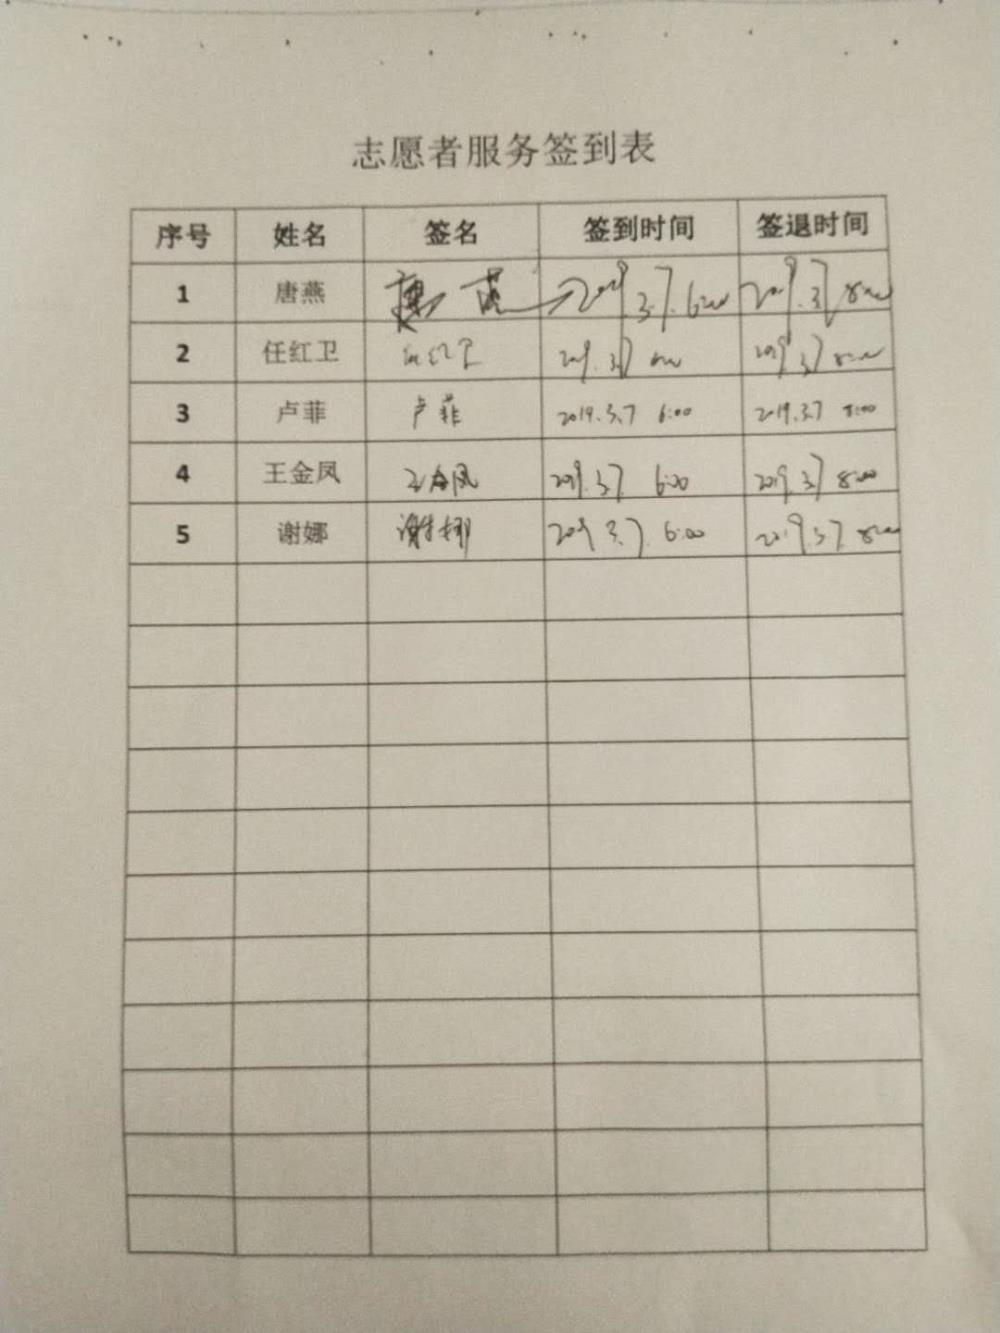 志愿者服务签到表
序号 姓名 签名 签到时间 签退时间
1 唐燕 唐燕 2019.3.7. 6:00 2019.3.7 8:00
2 任红卫 任红卫 2019.3.7 6:00 2019.3.7 8:00
3 卢菲 卢菲 2019.3.7 6:00 2019.3.7 8:00
4 王金凤 王金凤 2019.3.7 6:00 2019.3.7 8:00
5 谢娜 谢娜 2019.3.7. 6:00 2019.3.7. 8:00